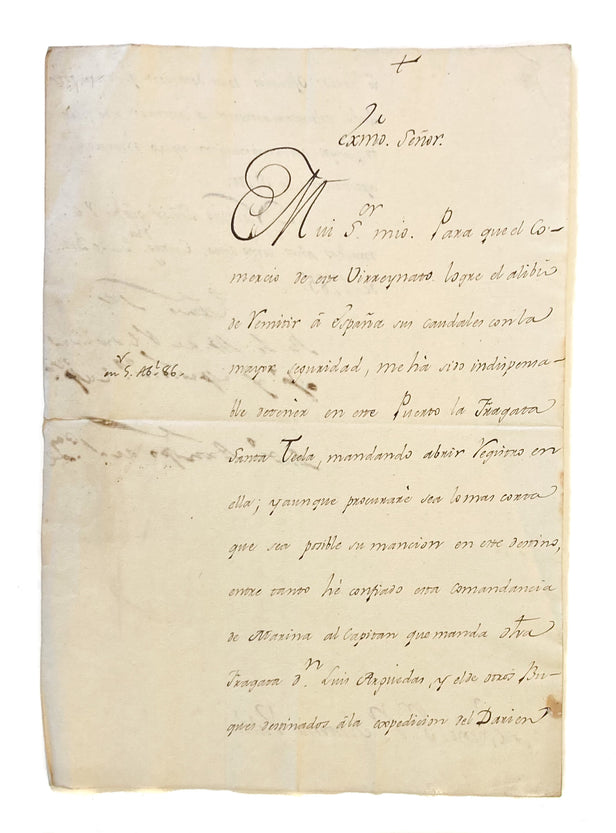 +
Exmo. Señor.
Mui Sor. mio. Para que el Co-
mercio de este Virreynato logre el alibio
de Remitir â España sus caudales con la
mayor seguridad, me há sido indispensa-
ble detener en este Puerto la Fragata
Santa Tecla, mandando abrir Registro en
ella; y aunque procuraré sea lo mas corta
que sea posible su mancion en este destino,
entre tanto hé confiado esta Comandancia
de Marina al Capitan que manda dha
Fragata Dn. Luis Arguedas, y el de otros Bu-
ques destinados âla expedicion del Darien
5. 86.